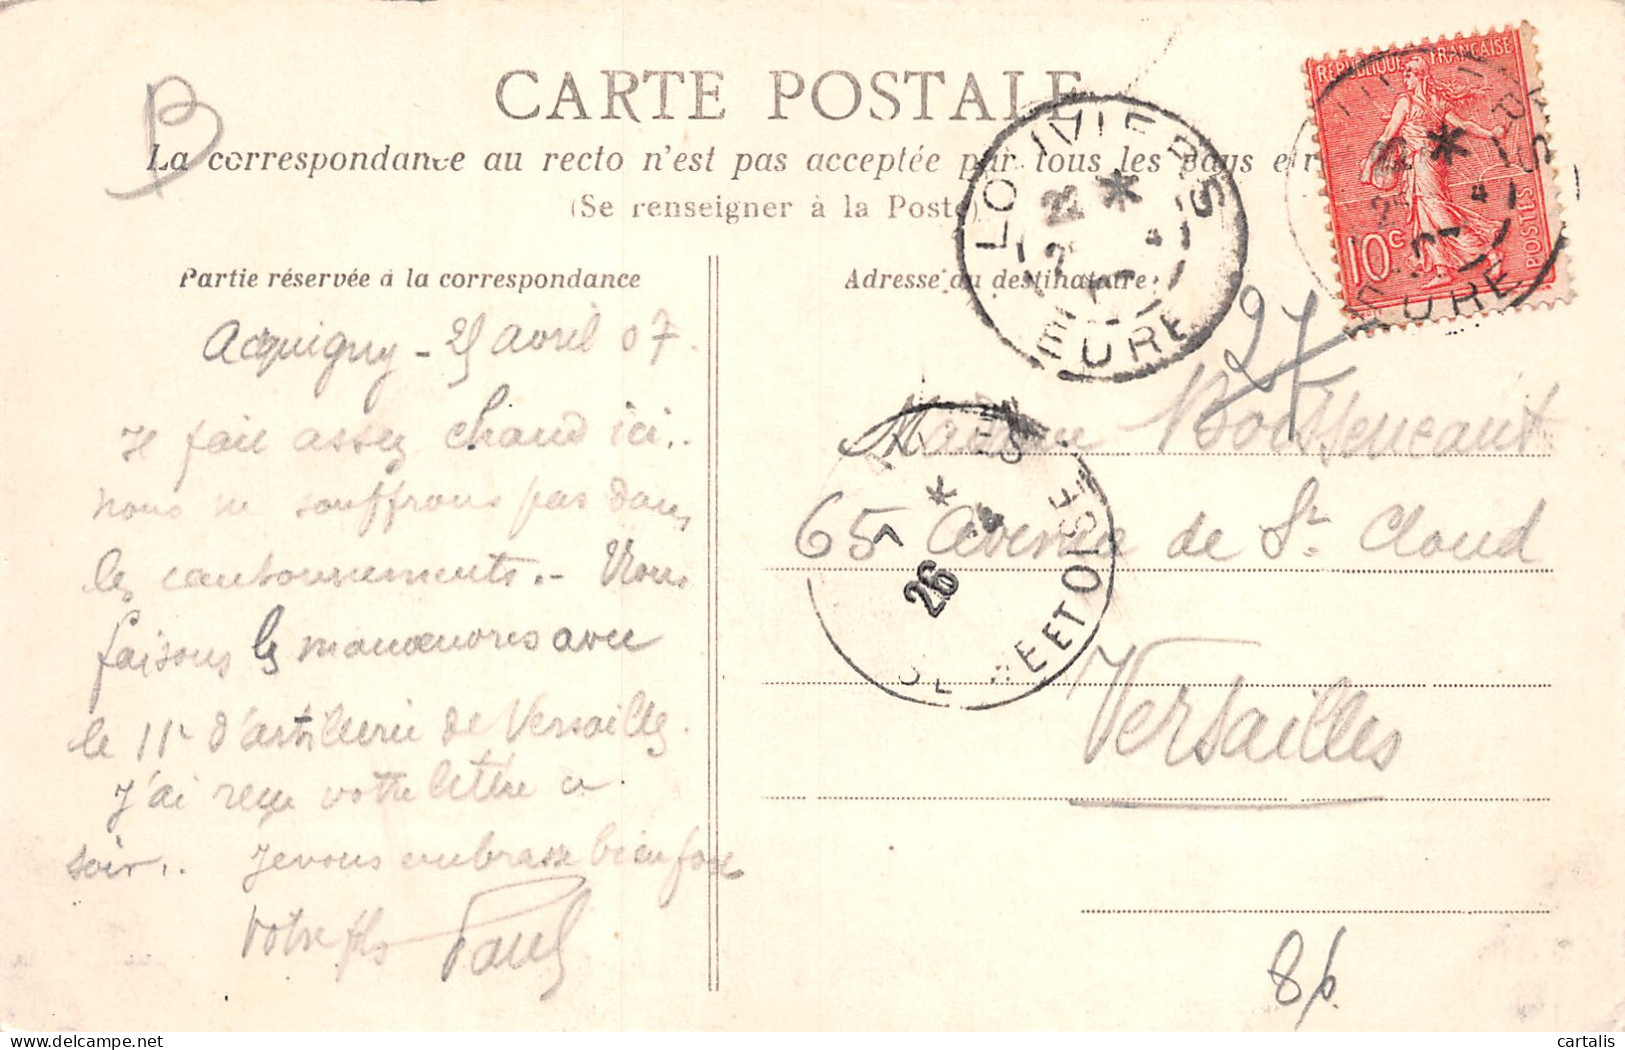 B
CARTE POSTALE
La correspondance au recto n'est pas acceptée par tous les pays
(Se renseigner à la Poste)
RÉPUBLIQUE FRANÇAISE
10c
POSTES
LOUVIERS
22 *
EURE
Partie réservée à la correspondance
Adresse du destinataire
Acquigny - 25 avril 07.
Il fait assez chaud ici..
nous ne souffrons pas dans
les cantonnements. - Nous
faisons les manoeuvres avec
le 11e d'artillerie de Versailles.
J'ai reçu votre lettre ce
soir.. Je vous embrasse bien fort
Votre fils Paul
27
Madame
65 Avenue de St. Cloud
Versailles
26
SEINE ET OISE
86
cartalis